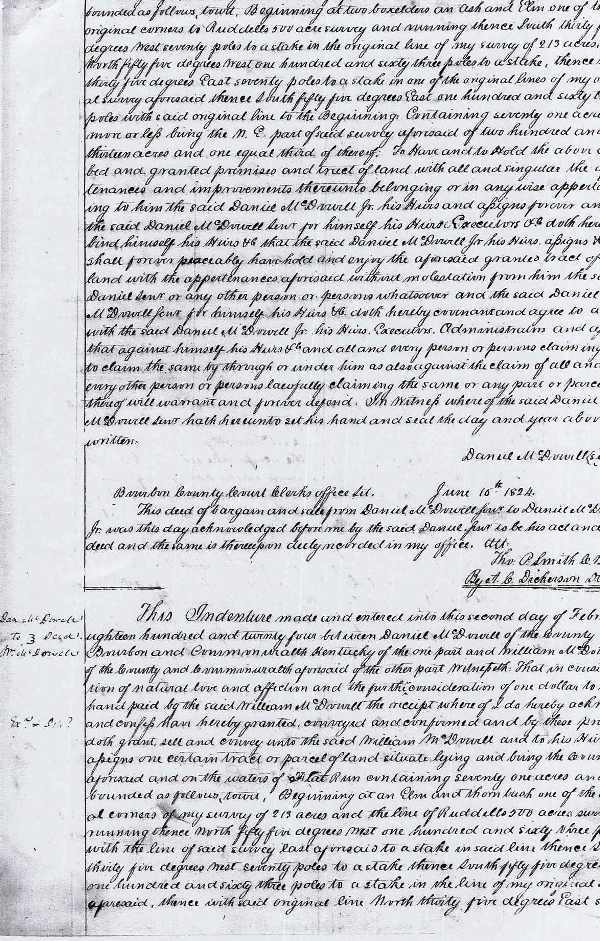 bounded as follows, towit, Beginning at two boxelders an Ash and Elm one of
original corners to Ruddells 500 acre survey and running thence South thirty
degrees West seventy poles to a stake in the original line of my survey of 213 acres
North fifty five degrees West one hundred and sixty three poles to a stake, thence
thirty five degrees East seventy poles to a stake in one of the original lines of my
al survey aforesaid thence South fifty five degrees East one hundred and sixty
poles with said original line to the Beginning. Containing seventy one acres
more or less being the N. E. part of said survey aforesaid of two hundred and
thirteen acres and one equal third of thereof: To Have and to Hold the above
bed and granted premises and tract of land with all and singular the
tenances and improvements thereunto belonging or in any wise appertain
ing to him the said Daniel McDowell Jr. his Heirs and assigns forever and
the said Daniel McDowell Senr for himself his Heirs Executors &c doth here
bind himself his Heirs &c that the said Daniel McDowell Jr his Heirs. assigns
shall forever peaceably have hold and enjoy the aforesaid granted tract of
land with the appertenances aforesaid without molestation from him the
Daniel Senr or any other person or persons whatsoever and the said Daniel
McDowell Senr for himself his Heirs &c doth hereby covenant and agree to
with the said Daniel McDowell Jr. his Heirs. Executors. Administrains and
that against himself his Heirs &c and all and every person or persons claiming
to claim the same by through or under him as also against the claim of all and
every other person or persons lawfully claiming the same or any part or parcel
thereof will warrant and forever defend. In Witness where of the said Daniel
McDowell Senr hath hereunto set his hand and seal the day and year above
written.
Daniel McDowell
Bourbon County Court Clerks office Sct. June 10th 1824.
This deed of bargain and sale from Daniel McDowell Senr to Daniel
Jr. was this day acknowledged before me by the said Daniel Senr to be his act and
deed and the same is thereupon duly recorded in my office. Att.
Tho. P. Smith C
By A. C. Dickerson
Danl McDowell
To } Deed
Wm McDowell
This Indenture made and entered into this second day of
eighteen hundred and twenty four between Daniel McDowell of the County
Bourbon and Commonwealth Kentucky of the one part and William
of the County and Commonwealth aforesaid of the other part Witnesseth: That in
tion of natural love and affection and the further consideration of one dollar to
hand paid by the said William McDowell the receipt where of I do hereby
and confess have hereby granted, conveyed and confirmed and by these
doth grant, sell and convey unto the said William McDowell and to his
assigns one certain tract or parcel of land situate lying and being the
aforesaid and on the waters of Flat Run containing seventy one acres and
bounded as follows, towit, Beginning at an Elm and thorn bush one of the
al corners of my survey of 213 acres and the line of Ruddells 500 acres
running thence North fifty five degrees West one hundred and sixty three
with the line of said survey East aforesaid to a stake in said line thence
thirty five degrees West seventy poles to a stake thence South fifty five
one hundred and sixty three poles to a stake in the line of my original
aforesaid, thence with said original line North thirty five degrees East